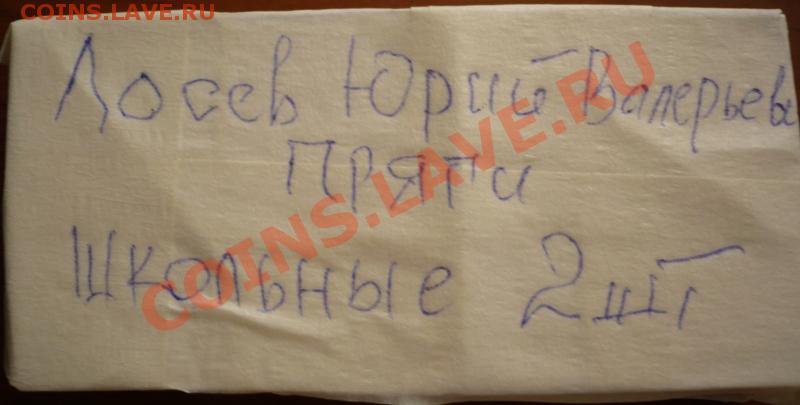 COINS.LAVE.RU
Лосев Юрий Валерьев
Пряги
Школьные 2шт
COINS.LAVE.RU